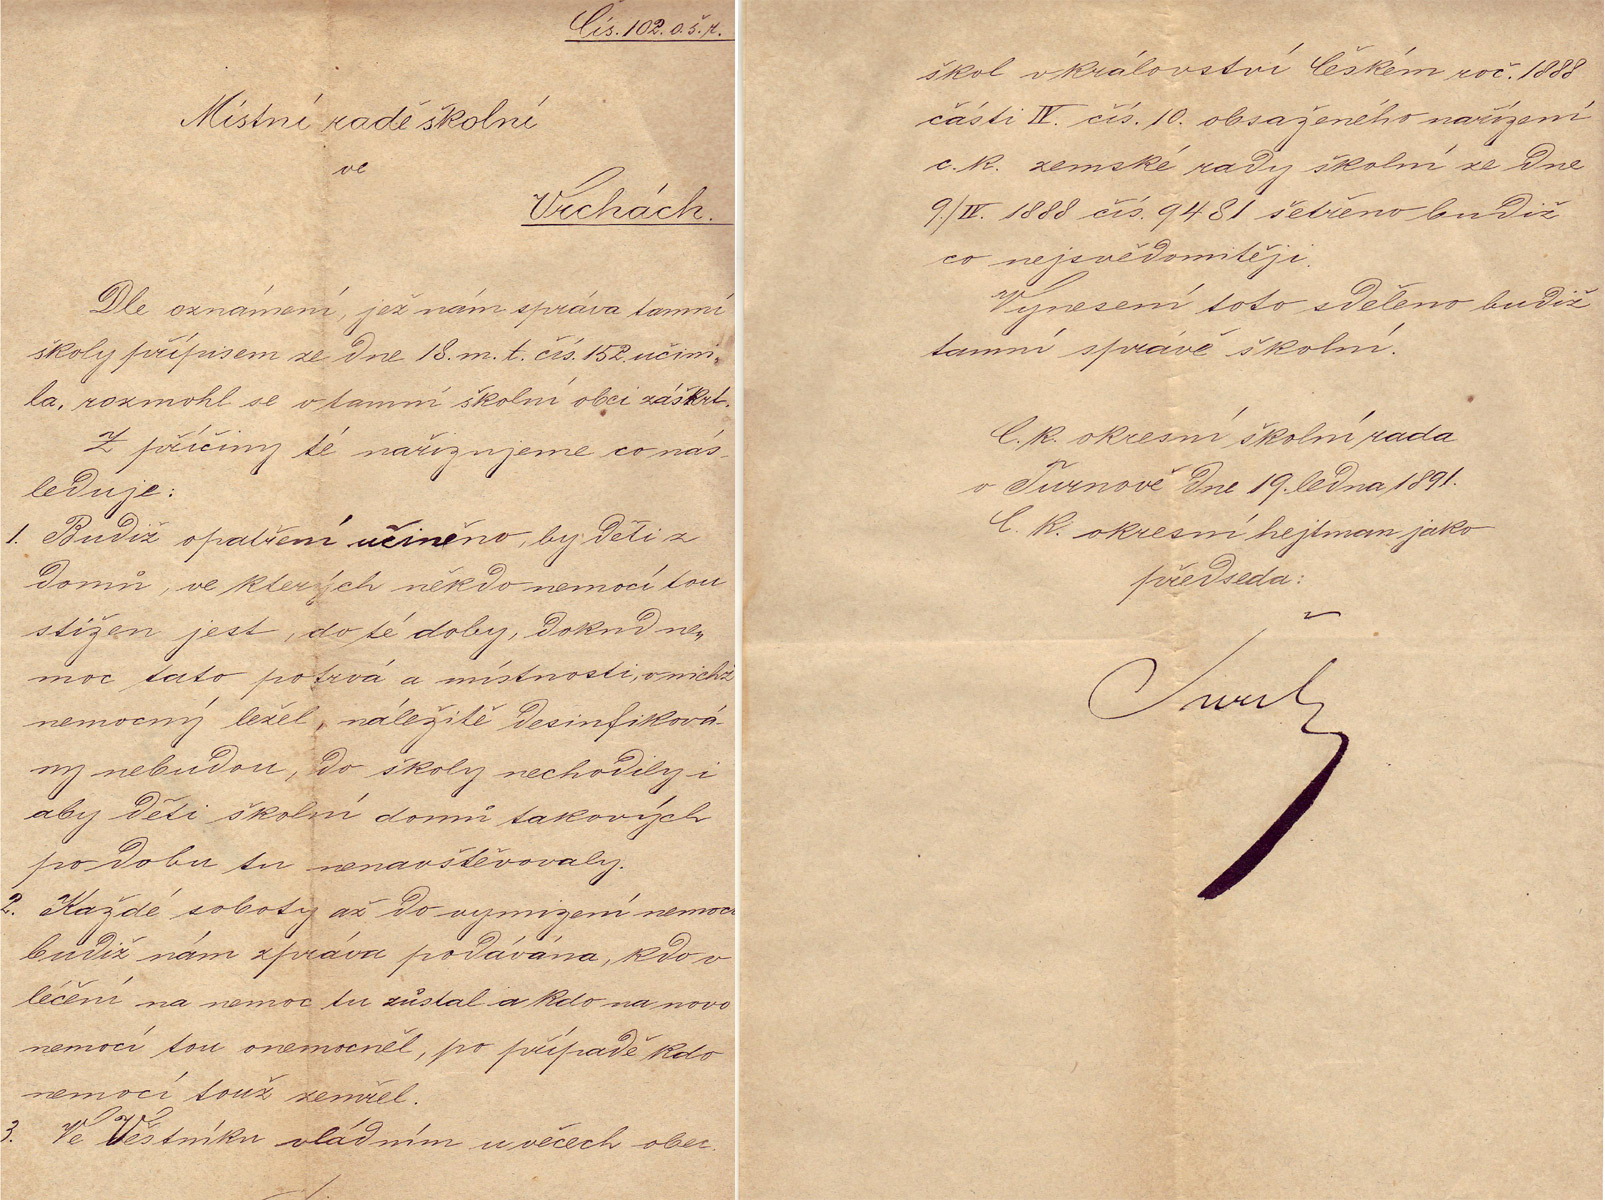 Čís. 102 o.š.r.
Místní radě školní
ve
Vrchách.
Dle oznámení, jež nám správa tamní
školy přípisem ze dne 18. m. t. čís. 152 učini„
la, rozmohl se v tamní školní obci záškrt.
Z příčiny té nařizujeme co nás-
leduje:
1. Budiž opatření učiněno, by děti z
domů, ve kterých někdo nemocí tou
stižen jest, do té doby, dokud ne„
moc tato potrvá a místnosti, v nichž
nemocný ležel, náležitě desinfiková-
ny nebudou, do školy nechodily i
aby děti školní domů takových
po dobu tu nenavštěvovaly.
2. Každé soboty až do vymizení nemoci
budiž nám zpráva podávána, kdo v
léčení na nemoc tu zůstal a kdo na novo
nemocí tou onemocněl, po případě kdo
nemocí touž zemřel.
3. Ve Věstníku vládním u věcech obec.
škol v království Českém roč. 1888
části IV. čís. 10. obsaženého nařízení
c. k. zemské rady školní ze dne
9./IV. 1888 čís. 9481 šetřeno budiž
co nejsvědomitěji.
Vynesení toto sděleno budiž
tamní správě školní.
C. k. okresní školní rada
v Turnově dne 19. ledna 1891.
C. k. okresní hejtman jako
předseda: